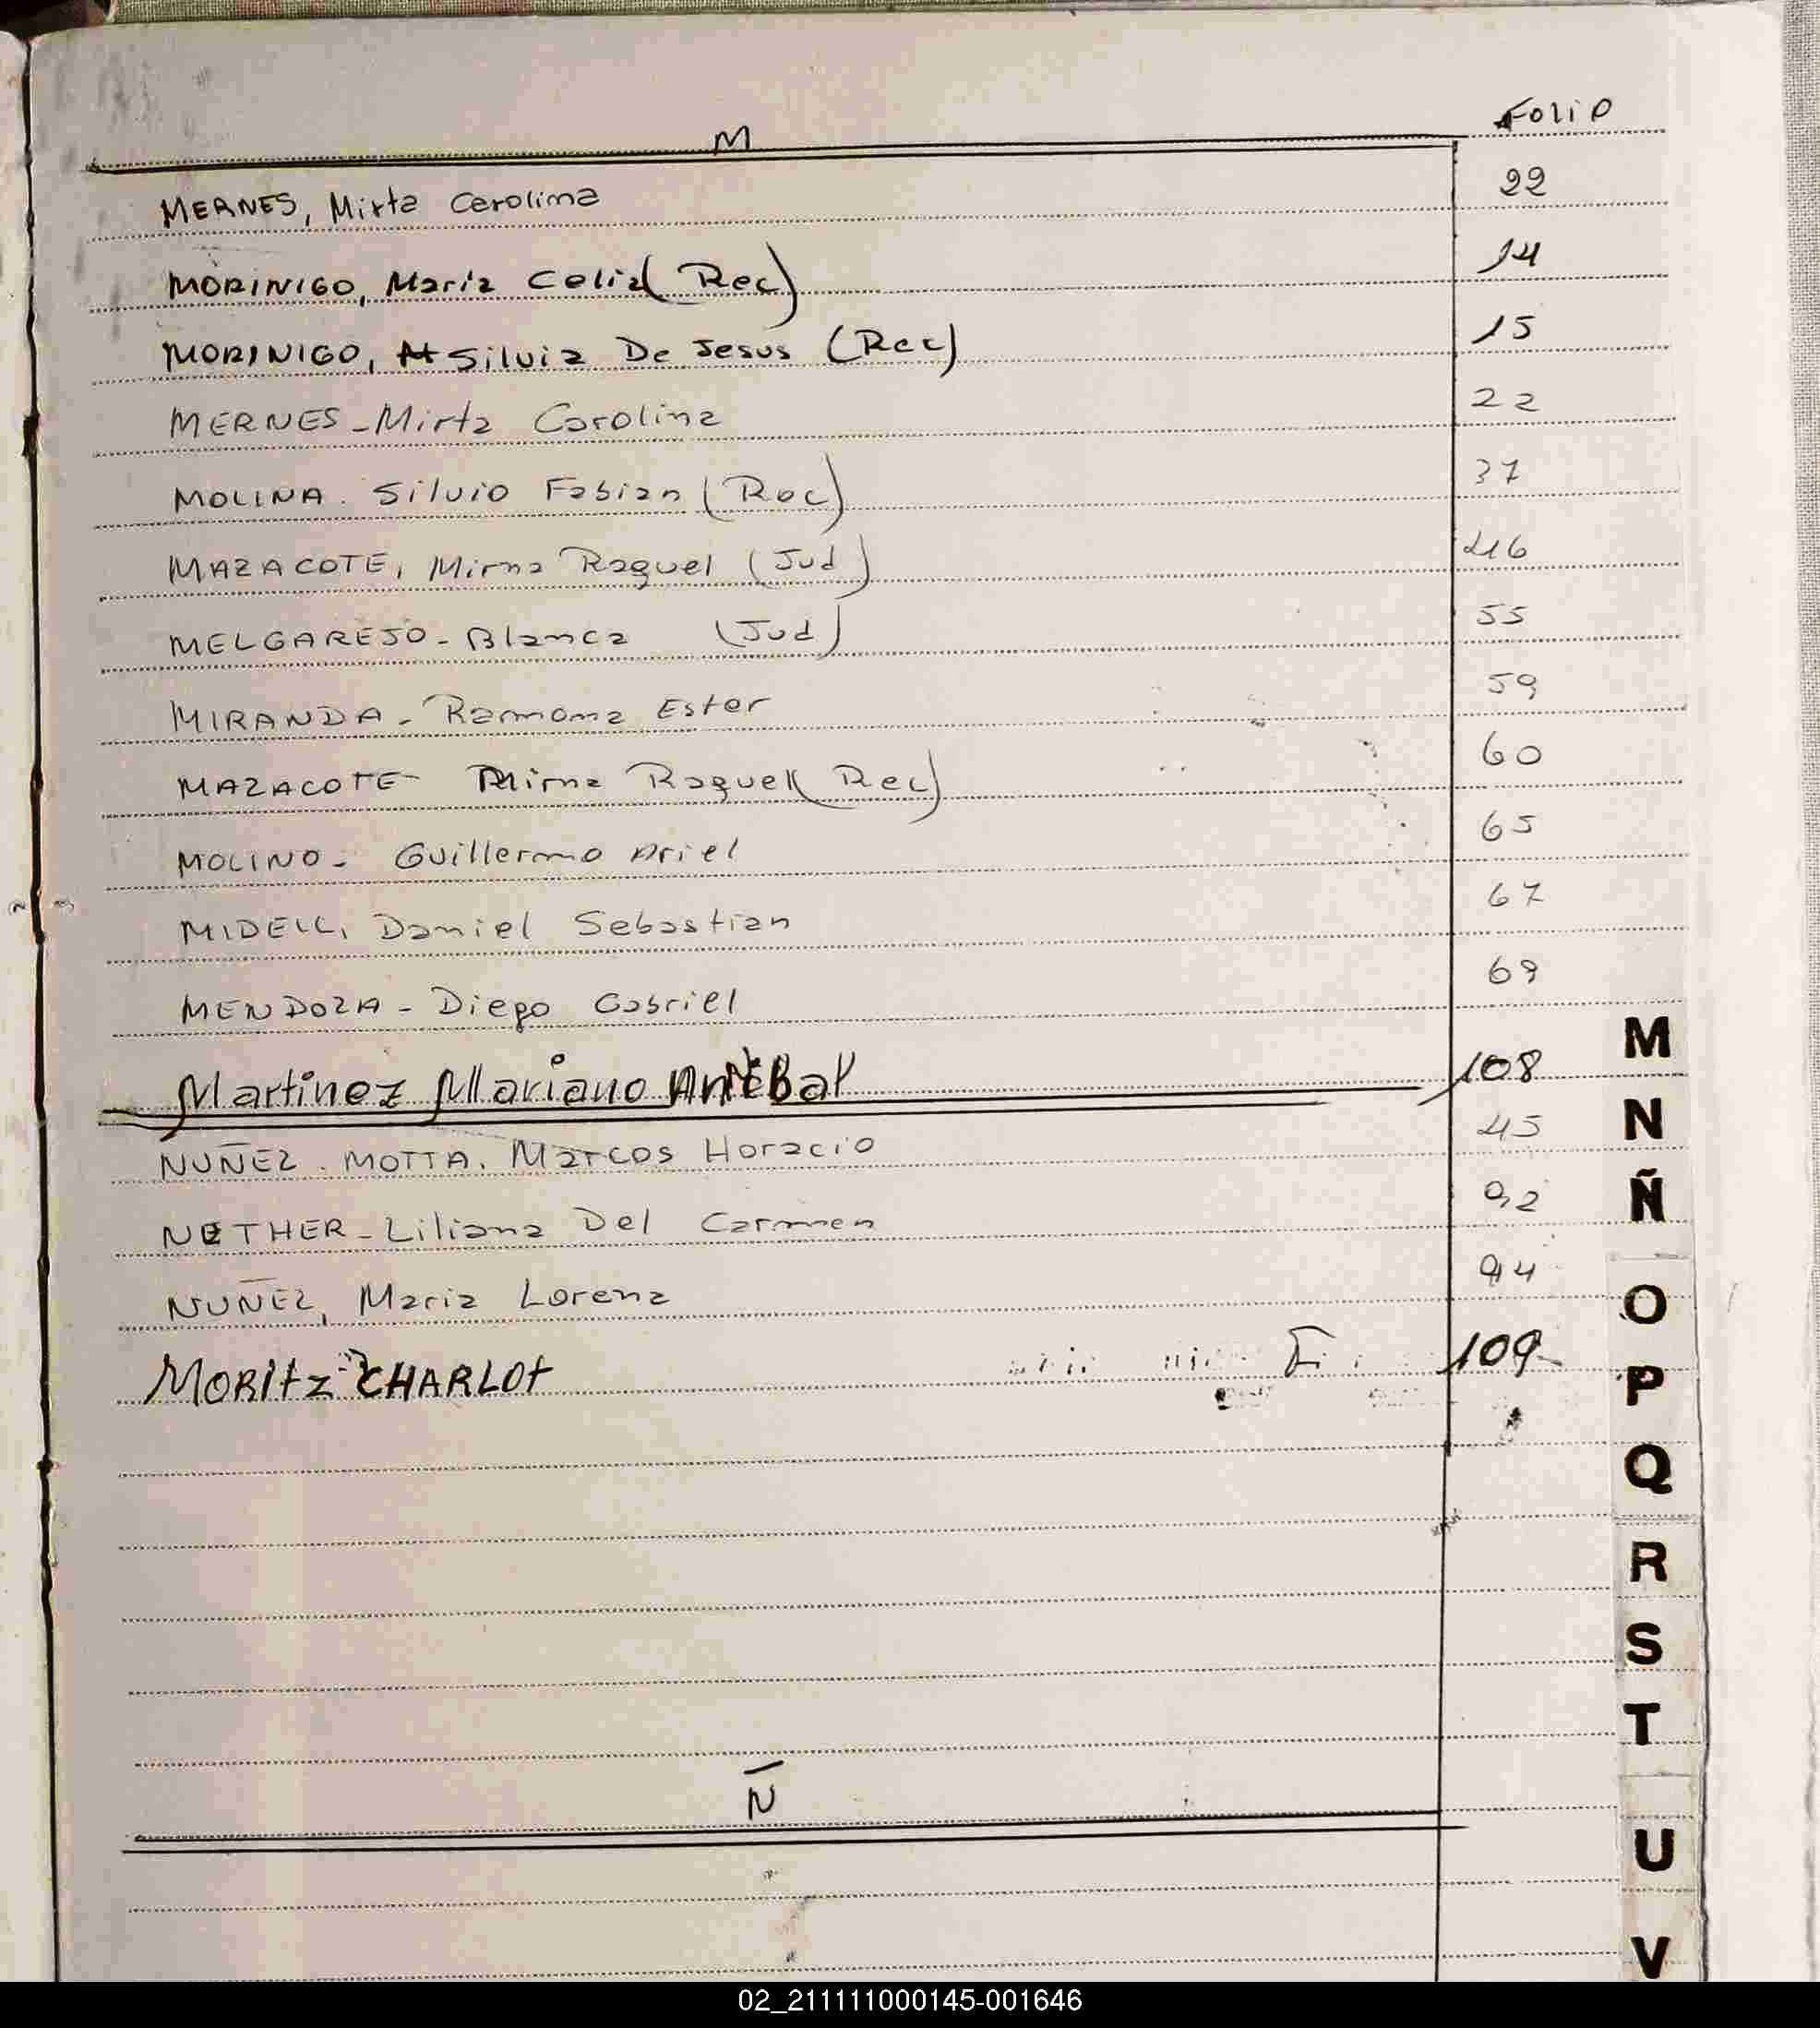 FOLIO
M
MERNES, Mirta Carolina 22
MORINIGO, Maria Celia (Rec) 14
MORINIGO, Silvia De Jesus (Rec) 15
MERNES - Mirta Carolina 22
MOLINA. Silvio Fabian (Rec) 37
MAZACOTE, Mirna Raquel (Jud) 46
MELGAREJO - Blanca (Jud) 55
MIRANDA - Ramona Ester 59
MAZACOTE - Mirna Raquel (Rec) 60
MOLINO - Guillermo Ariel 65
MIDELL, Daniel Sebastian 67
MENDOZA - Diego Gabriel 69
Martinez Mariano Anibal 108
NUÑEZ. MOTTA. Marcos Horacio 45
NETHER - Liliana Del Carmen 92
NUÑEZ, Maria Lorena 94
MORITZ CHARLOT 109
Ñ
M
N
Ñ
O
P
Q
R
S
T
U
V
02_211111000145-001646